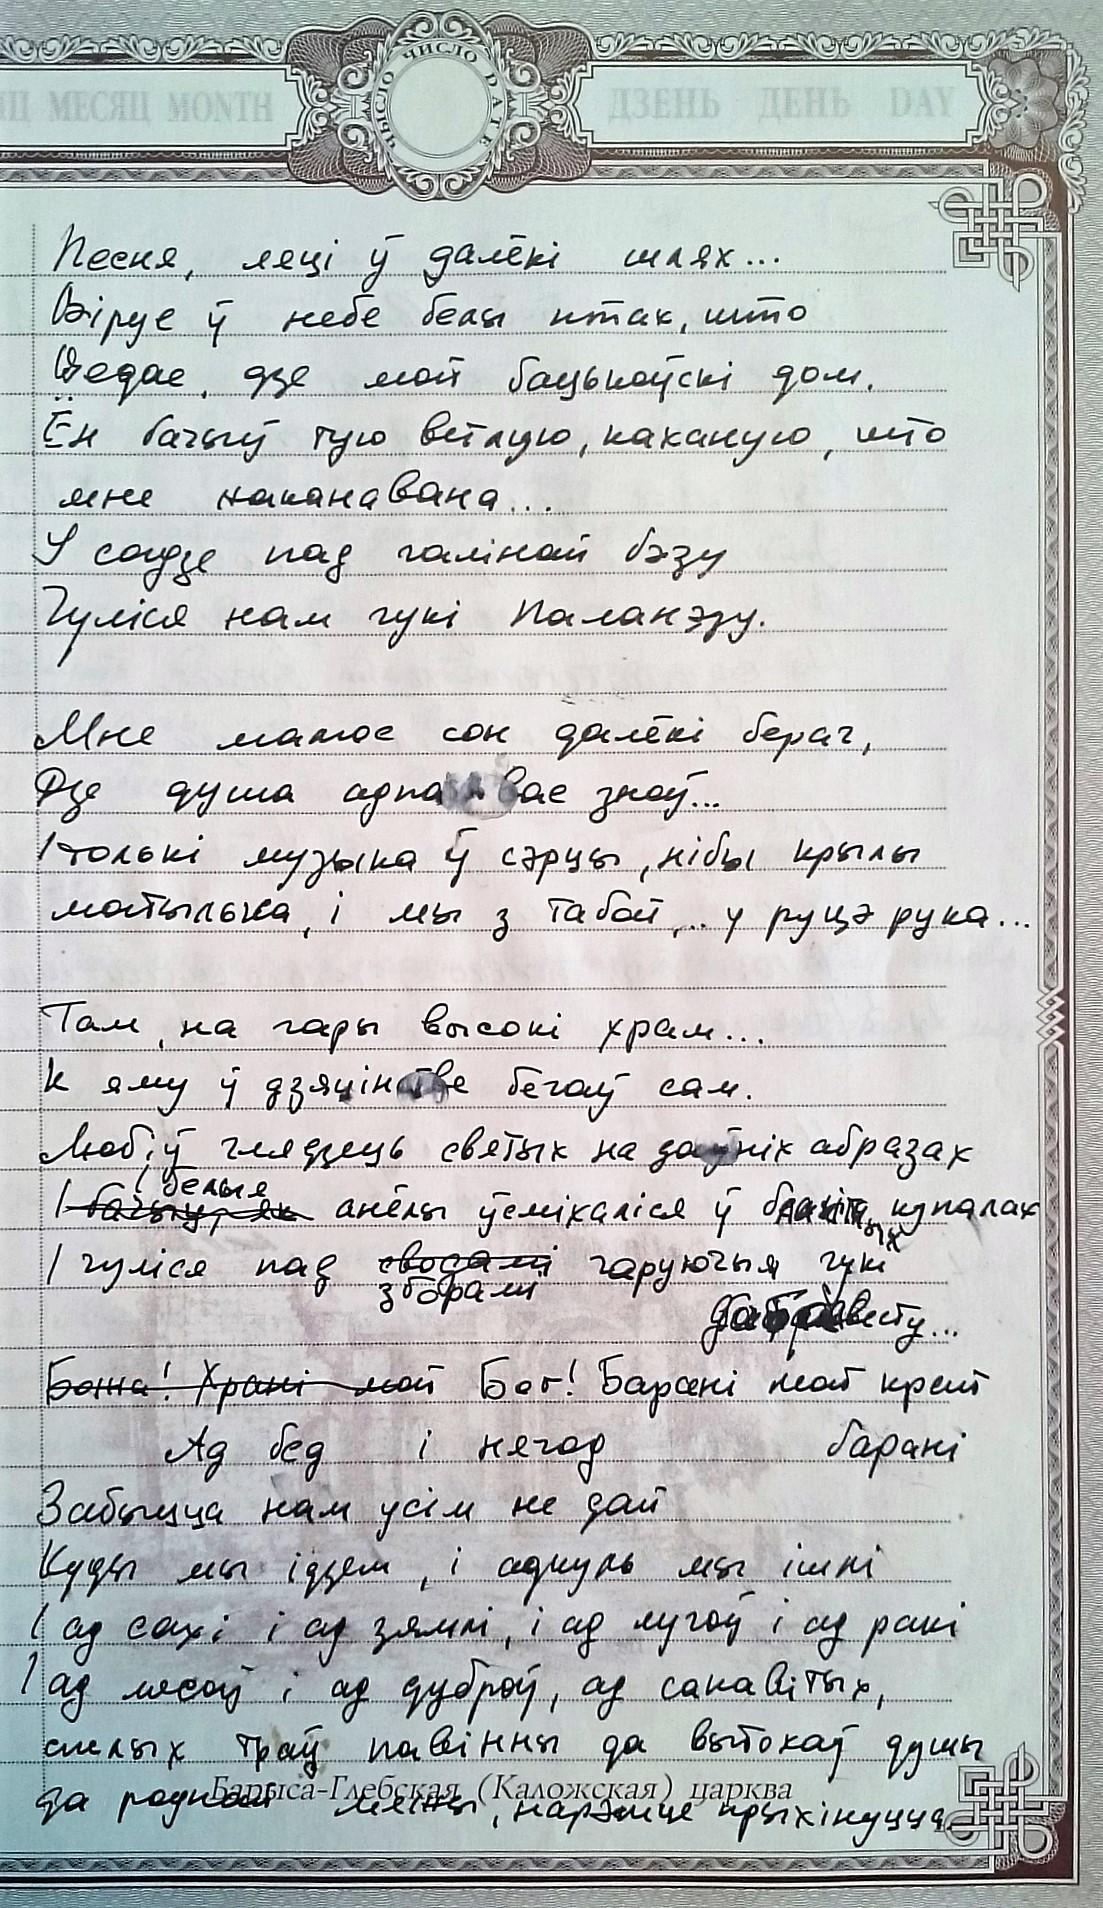 МЕСЯЦ MONTH
ЧЫСЛО ЧИСЛО DATE
ДЗЕНЬ ДЕНЬ DAY
Песня, ляці ў далёкі шлях...
Віруе ў небе белы птах, што
Ведае, дзе мой бацькоўскі дом.
Ён бачыў тую ветлую, каханую, што
мне наканавана...
У садзе пад галінай бэзу
Чуліся нам гукі Паланэзу.
Мне малюе сон далёкі бераг,
Дзе душа адпачывае зноў...
І толькі музыка ў сэрцы, нібы крылы
матылька, і мы з табой,.. у руцэ рука...
Там, на гары высокі храм...
К яму ў дзяцінстве бегаў сам.
Любіў глядзець святых на даўніх абразах
І белыя
бачыў, як анёлы ўсміхаліся ў блакітных купалах
І чуліся пад сводамі гаручыя гукі
зборамі
запавету...
Божа! Храні мой Бог! Барані мой край
Ад бед і нягод барані
Забыцца нам усім не дай
Куды мы ідзем, і адкуль мы ішлі
І ад сахі і ад зямлі, і ад лугоў і ад ракі
І ад лясоў і ад дуброў, ад сакавітых,
спелых траў павінны да вытокаў душы
да роднай мяжы, нарэшце прыхінуцца
Барыса-Глебская (Каложская) царква